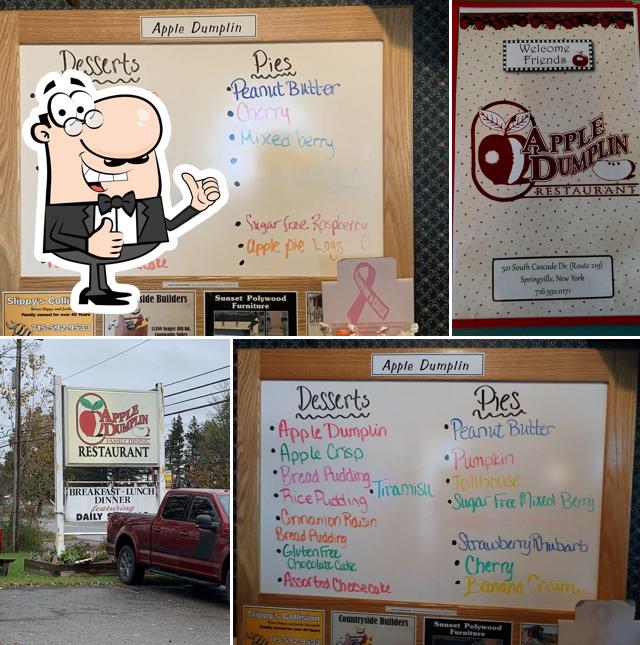 Apple Dumplin
Desserts
Pies
Peanut Butter
Cherry
Mixed berry
Sugar free Raspberry
Apple pie Logs
Slippy's Collision
Family owned for over 40 Years
715-592-9533
side Builders
Sunset Polywood
Furniture
Welcome
Friends
APPLE
DUMPLIN
RESTAURANT
521 South Cascade Dr. (Route 219)
Springville, New York
716.592.0171
APPLE
DUMPLIN
FAMILY DINING
RESTAURANT
BREAKFAST · LUNCH
DINNER
featuring
DAILY
Apple Dumplin
Desserts
Apple Dumplin
Apple Crisp
Bread Pudding
Rice Pudding
Tiramisu
Cinnamon Raisin
Bread Pudding
Gluten Free
Chocolate Cake
Assorted Cheesecake
Pies
Peanut Butter
Pumpkin
Tollhouse
Sugar Free Mixed Berry
Strawberry Rhubarb
Cherry
Banana Cream
Slippy's Collision
Family owned for over 40 Years
715-592-9533
Countryside Builders
Sunset Polywood
Furniture